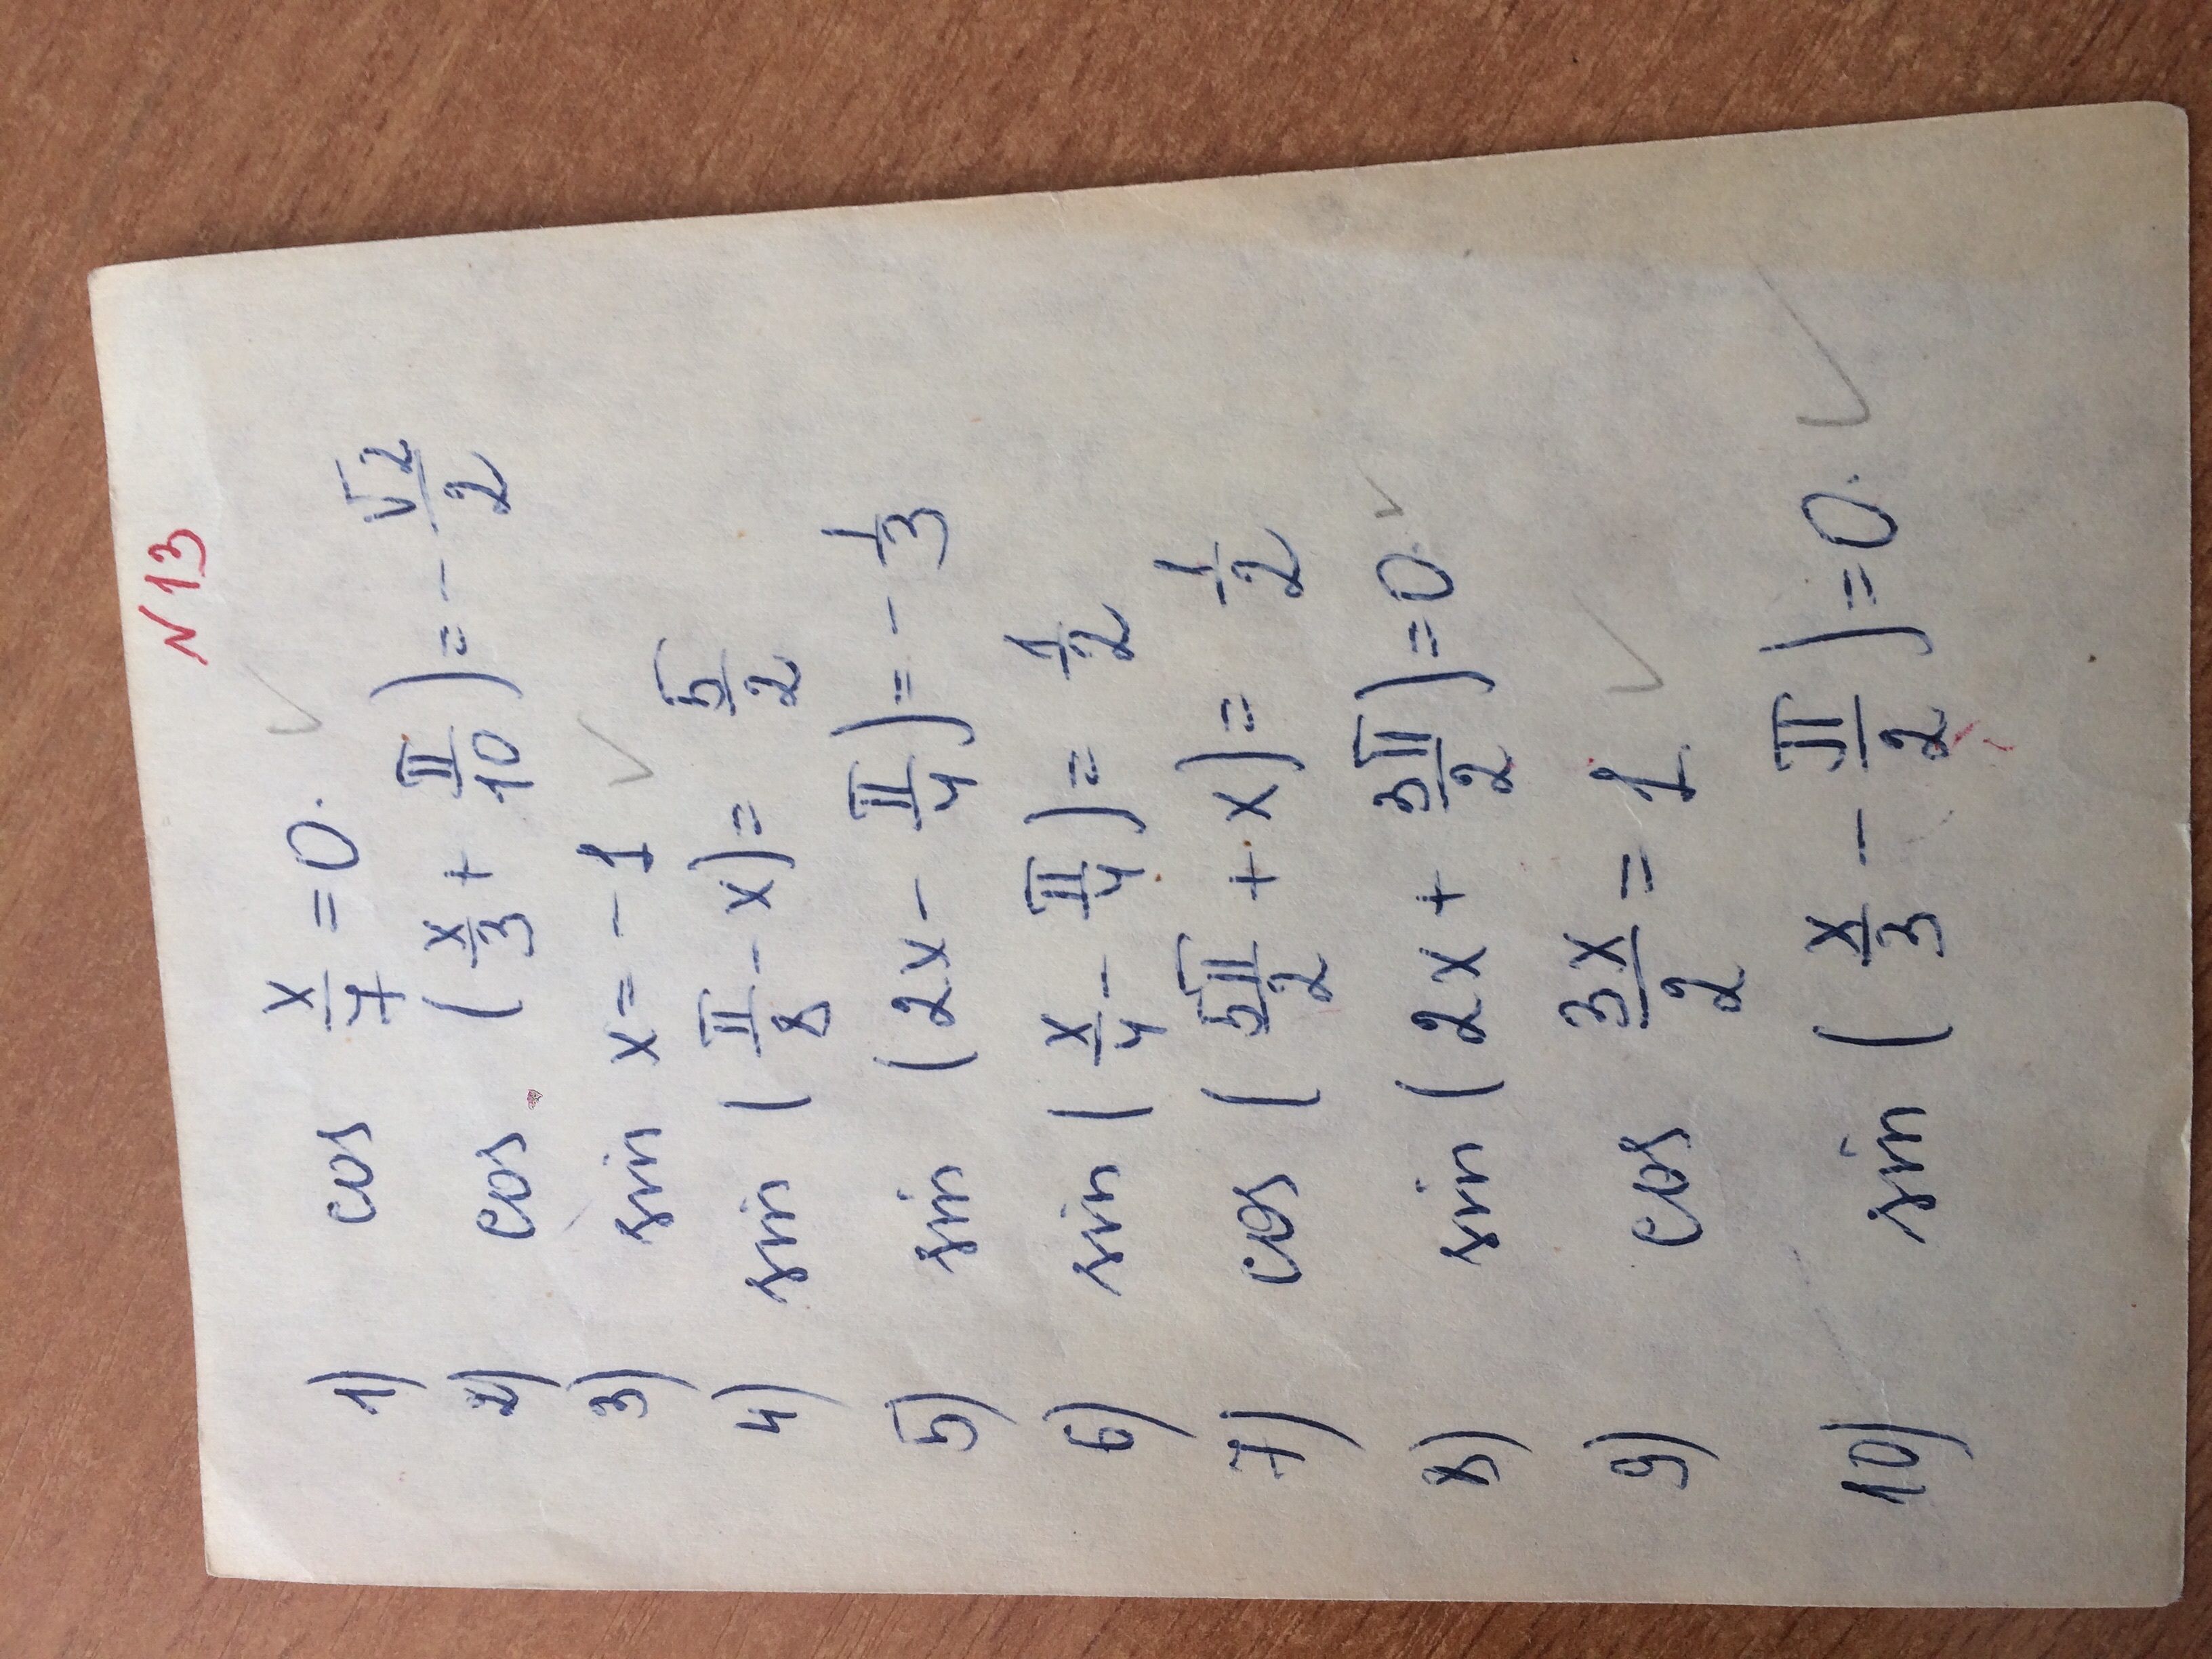 N 13
1) cos x/7 = 0.
2) cos (x/3 + π/10) = - √2/2
3) sin x = - 1
4) sin (π/8 - x) = 5/2
5) sin (2x - π/4) = - 1/3
6) sin (x/4 - π/4) = 1/2
7) cos (5π/2 + x) = 1/2
8) sin (2x + 3π/2) = 0.
9) cos 3x/2 = 1
10) sin (x/3 - π/2) = 0.